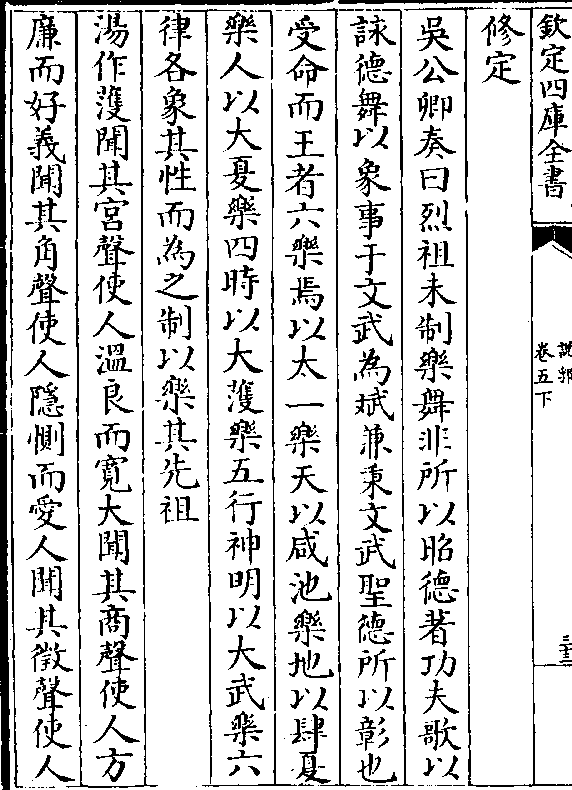 欽定四庫全書
說郛
卷五下
三十三
修定
吳公卿奏曰烈祖未制樂舞非所以昭德著功夫歌以
詠德舞以象事于文武為斌兼秉文武聖德所以彰也
受命而王者六樂焉以太一樂天以咸池樂地以肆夏
樂人以大夏樂四時以大濩樂五行神明以大武樂六
律各象其性而為之制以樂其先祖
湯作濩聞其宮聲使人溫良而寛大聞其商聲使人方
廉而好義聞其角聲使人隱惻而愛人聞其徵聲使人